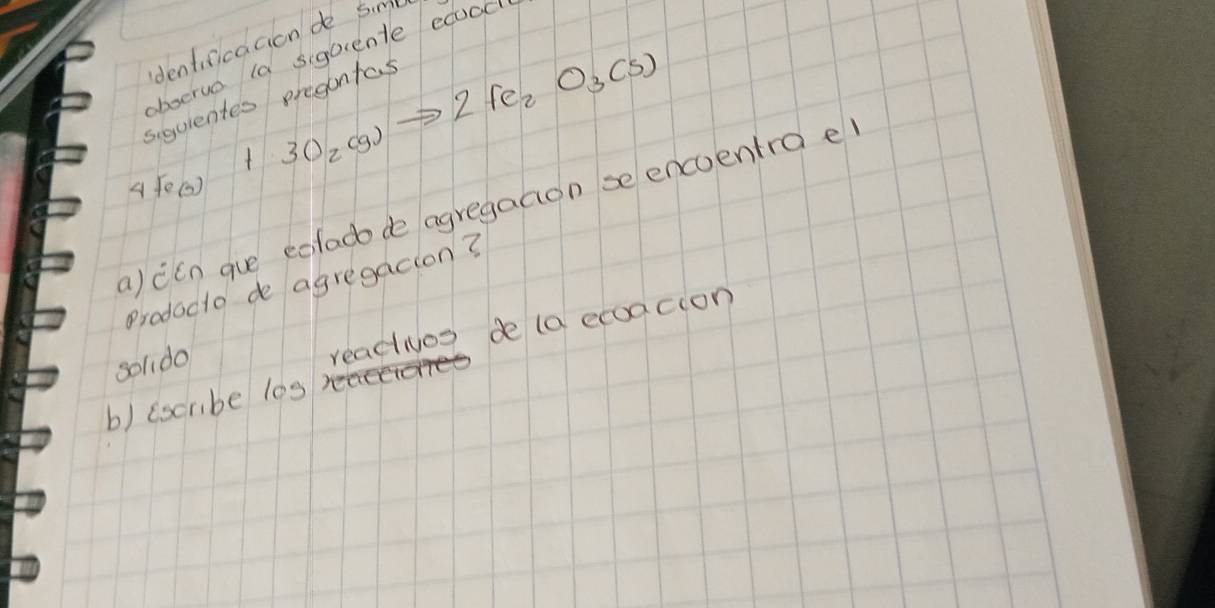 identificacion de
observa la siguiente
siguientes preguntas
4 fe(s) + 3O₂ (g) → 2 fe₂ O₃ (s)
a) ¿En que estado de agregacion se encuentra el
producto de agregacion?
solido
b) Escribe los reactivos de la ecuacion